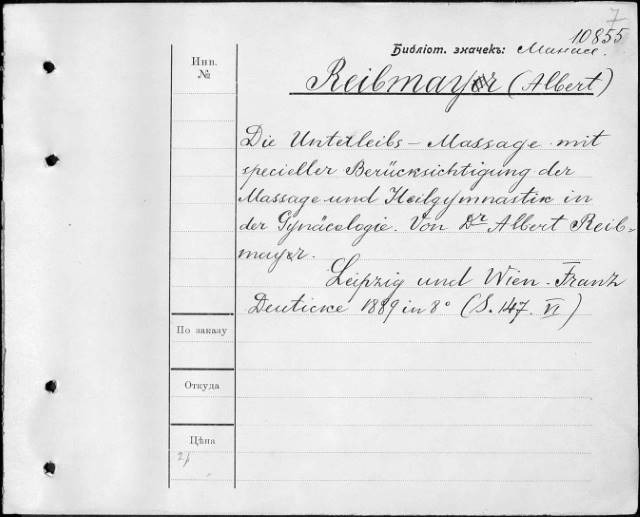 7
10855
Библіот. значекъ:
Инв.
№
Reibmayr (Albert)
Die Unterleibs - Massage mit
specieller Berücksichtigung der
Massage und Heilgymnastik in
der Gynäcologie. Von Dr Albert Reib-
mayr.
Leipzig und Wien. Franz
Deuticke 1889 in 8° (S. 147. VI)
По заказу
Откуда
Цѣна